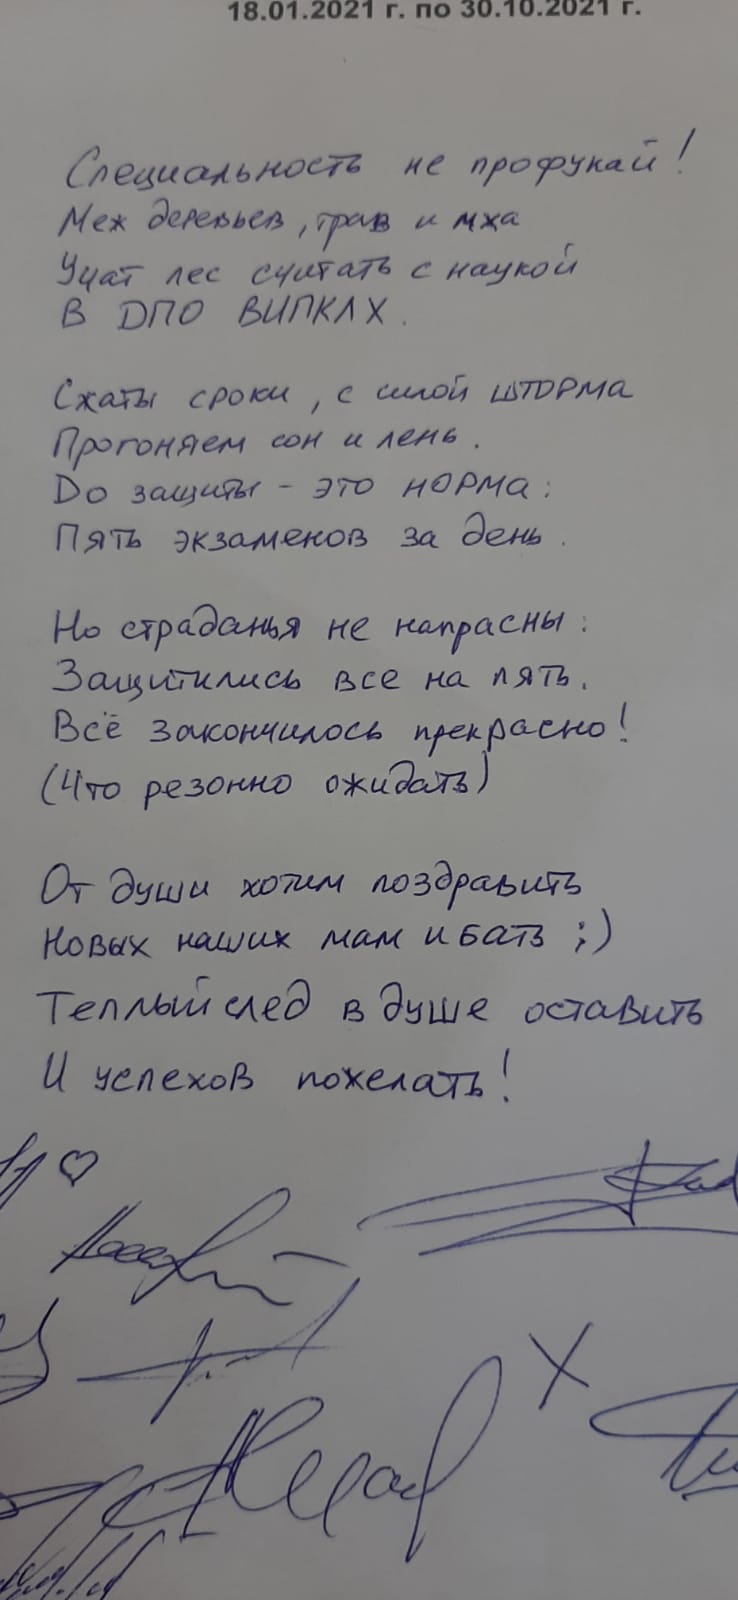 18.01.2021 г. по 30.10.2021 г.
Специальность не профукай!
Меж деревьев, трав и мха
Учат лес считать с наукой
В ДПО ВИПКЛХ.
Сжаты сроки, с силой шторма
Прогоняем сон и лень.
До защиты - это норма:
Пять экзаменов за день.
Но страданья не напрасны:
Защитились все на пять.
Всё закончилось прекрасно!
(Что резонно ожидать)
От души хотим поздравить
Новых наших мам и бать ;)
Теплый след в душе оставить
И успехов пожелать!